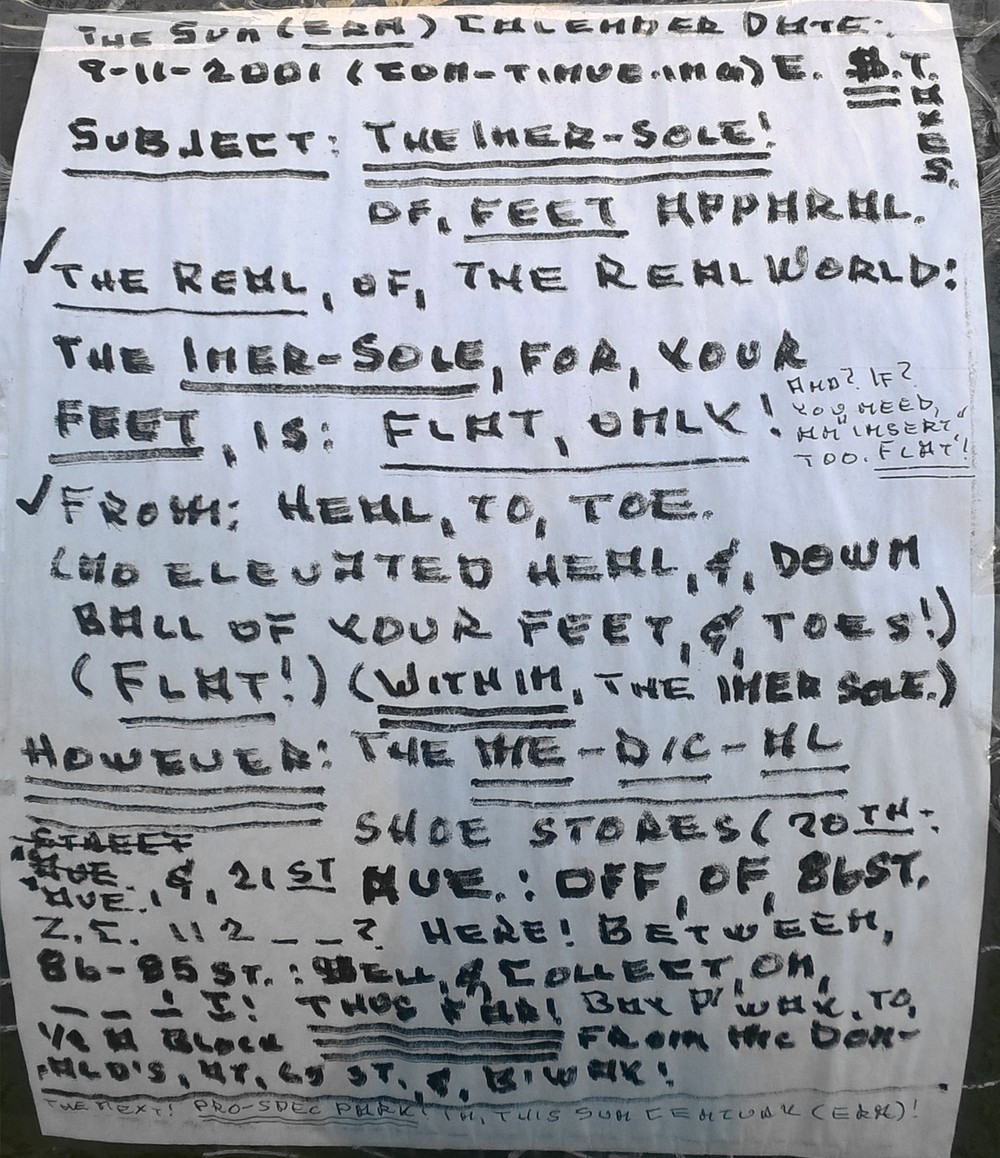 THE SUN (ERA) CALENDER DATE:
9-11-2001 (CON-TINUE.ING) E. $.T.
AXES.
SUBJECT: THE INER-SOLE!
OF, FEET APPARAL.
✓THE REAL, OF, THE REAL WORLD:
THE INER-SOLE, FOR, YOUR
FEET, IS: FLAT, ONLY!
AND? IF?
YOU NEED,
AN "INSERT",
TOO. FLAT!
✓FROM: HEAL, TO, TOE.
(NO ELEVATED HEAL, &, DOWN
BALL OF YOUR FEET, &, TOES!)
(FLAT!) (WITHIN, THE INER SOLE.)
HOWEVER: THE ME-DIC-AL
SHOE STORES (20TH-
STREET
AVE.
AVE., &, 21ST AVE.: OFF, OF, 86 ST.
Z.C. 112 _ _? HERE! BETWEEN,
86-85 ST.: BELL, & COLLECT, ON,
THUS FAR! BAY P'WAY. TO,
1/2 A BLOCK FROM Mc DON-
ALD'S, AT, 65 ST. &, B'WAY!
THE NEXT! PRO-SPEC PARK! IN, THIS SUN CENTURY (ERA)!